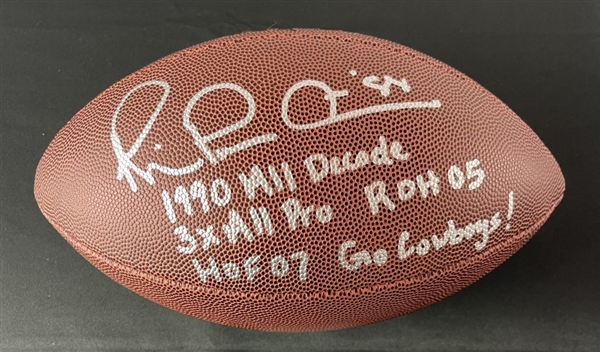 1990 All Decade
3x All Pro ROH 05
HOF 07 Go Cowboys!